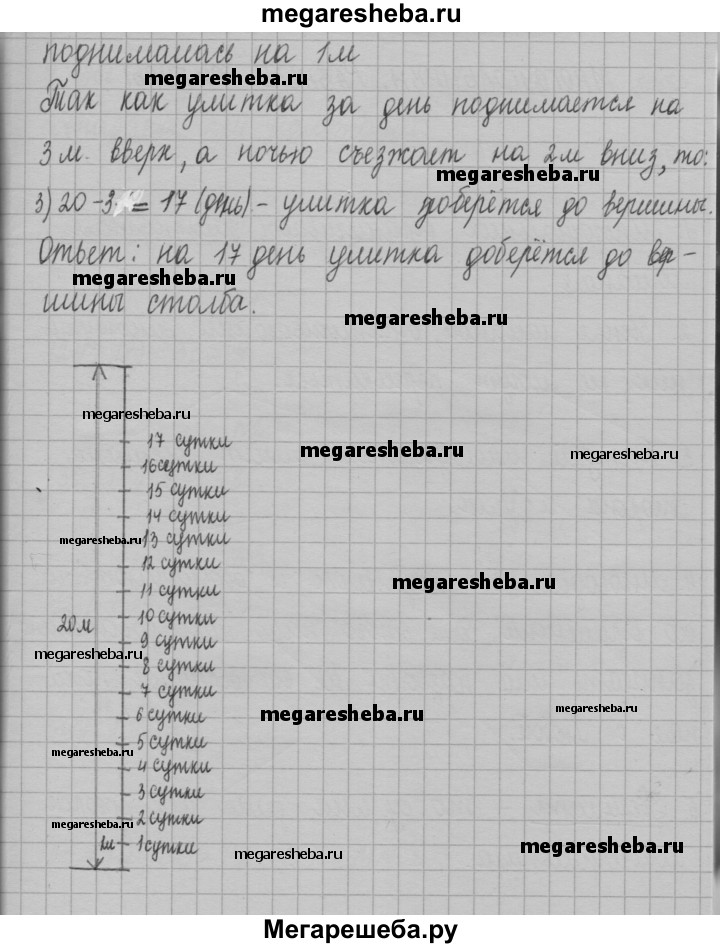 megaresheba.ru
поднималась на 1м
megaresheba.ru
Так как улитка за день поднимается на
3 м. вверх, а ночью съезжает на 2м вниз, то:
megaresheba.ru
3) 20 - 3 = 17 (день) - улитка доберётся до вершины.
Ответ: на 17 день улитка доберётся до вер-
megaresheba.ru
шины столба.
megaresheba.ru
megaresheba.ru
17 сутки
megaresheba.ru
megaresheba.ru
16 сутки
15 сутки
14 сутки
megaresheba.ru
13 сутки
12 сутки
megaresheba.ru
11 сутки
10 сутки
20м
9 сутки
megaresheba.ru
8 сутки
7 сутки
megaresheba.ru
6 сутки
megaresheba.ru
5 сутки
megaresheba.ru
4 сутки
3 сутки
2 сутки
megaresheba.ru
1м
1 сутки
megaresheba.ru
megaresheba.ru
Мегарешеба.ру